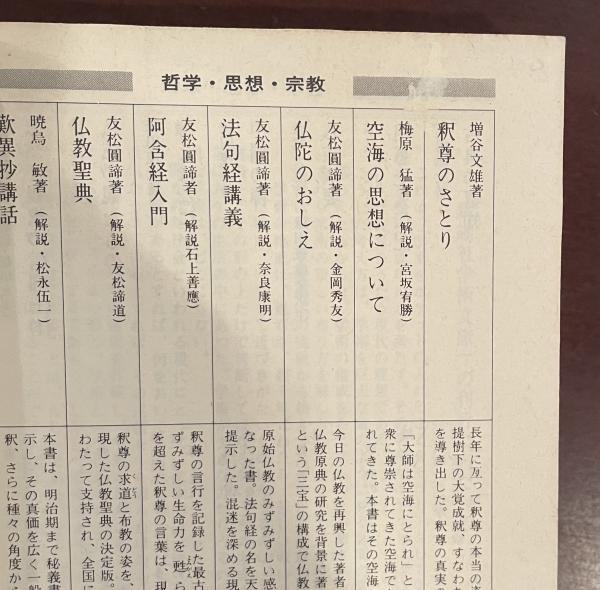 哲学・思想・宗教
増谷文雄著
釈尊のさとり
長年に亙って釈尊の本当の
提樹下の大覚成就、すなわ
を導き出した。釈尊の真実の
梅原 猛著（解説・宮坂宥勝）
空海の思想について
「大師は空海にとられ」と
衆に尊崇されてきた空海で
れてきた。本書はその空海
友松圓諦著（解説・金岡秀友）
仏陀のおしえ
今日の仏教を再興した著者
仏教原典の研究を背景に著
という「三宝」の構成で仏教
友松圓諦著（解説・奈良康明）
法句経講義
原始仏教のみずみずしい感
なった書。法句経の名を天
提示した。混迷を深める現
友松圓諦者（解説石上善應）
阿含経入門
釈尊の言行を記録した最古
ずみずしい生命力を甦ら
を超えた釈尊の言葉は、現
友松圓諦著（解説・友松諦道）
仏教聖典
釈尊の求道と布教の姿を、
現した仏教聖典の決定版。
わたって支持され、全国に
暁烏 敏著（解説・松永伍一）
歎異抄講話
本書は、明治期まで秘義書
示し、その真価を広く一般
釈、さらに種々の角度か